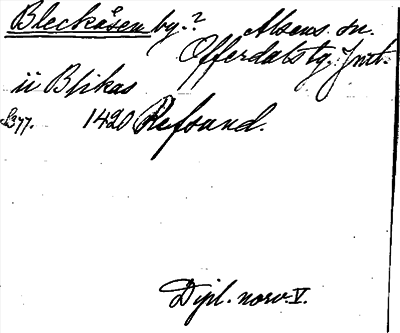 Bleckåsen by.? Alsens sn.
Offerdals tg. Jmtl.
ii Blikas
S377. 1420 Refsund.
Dipl. norv. V.